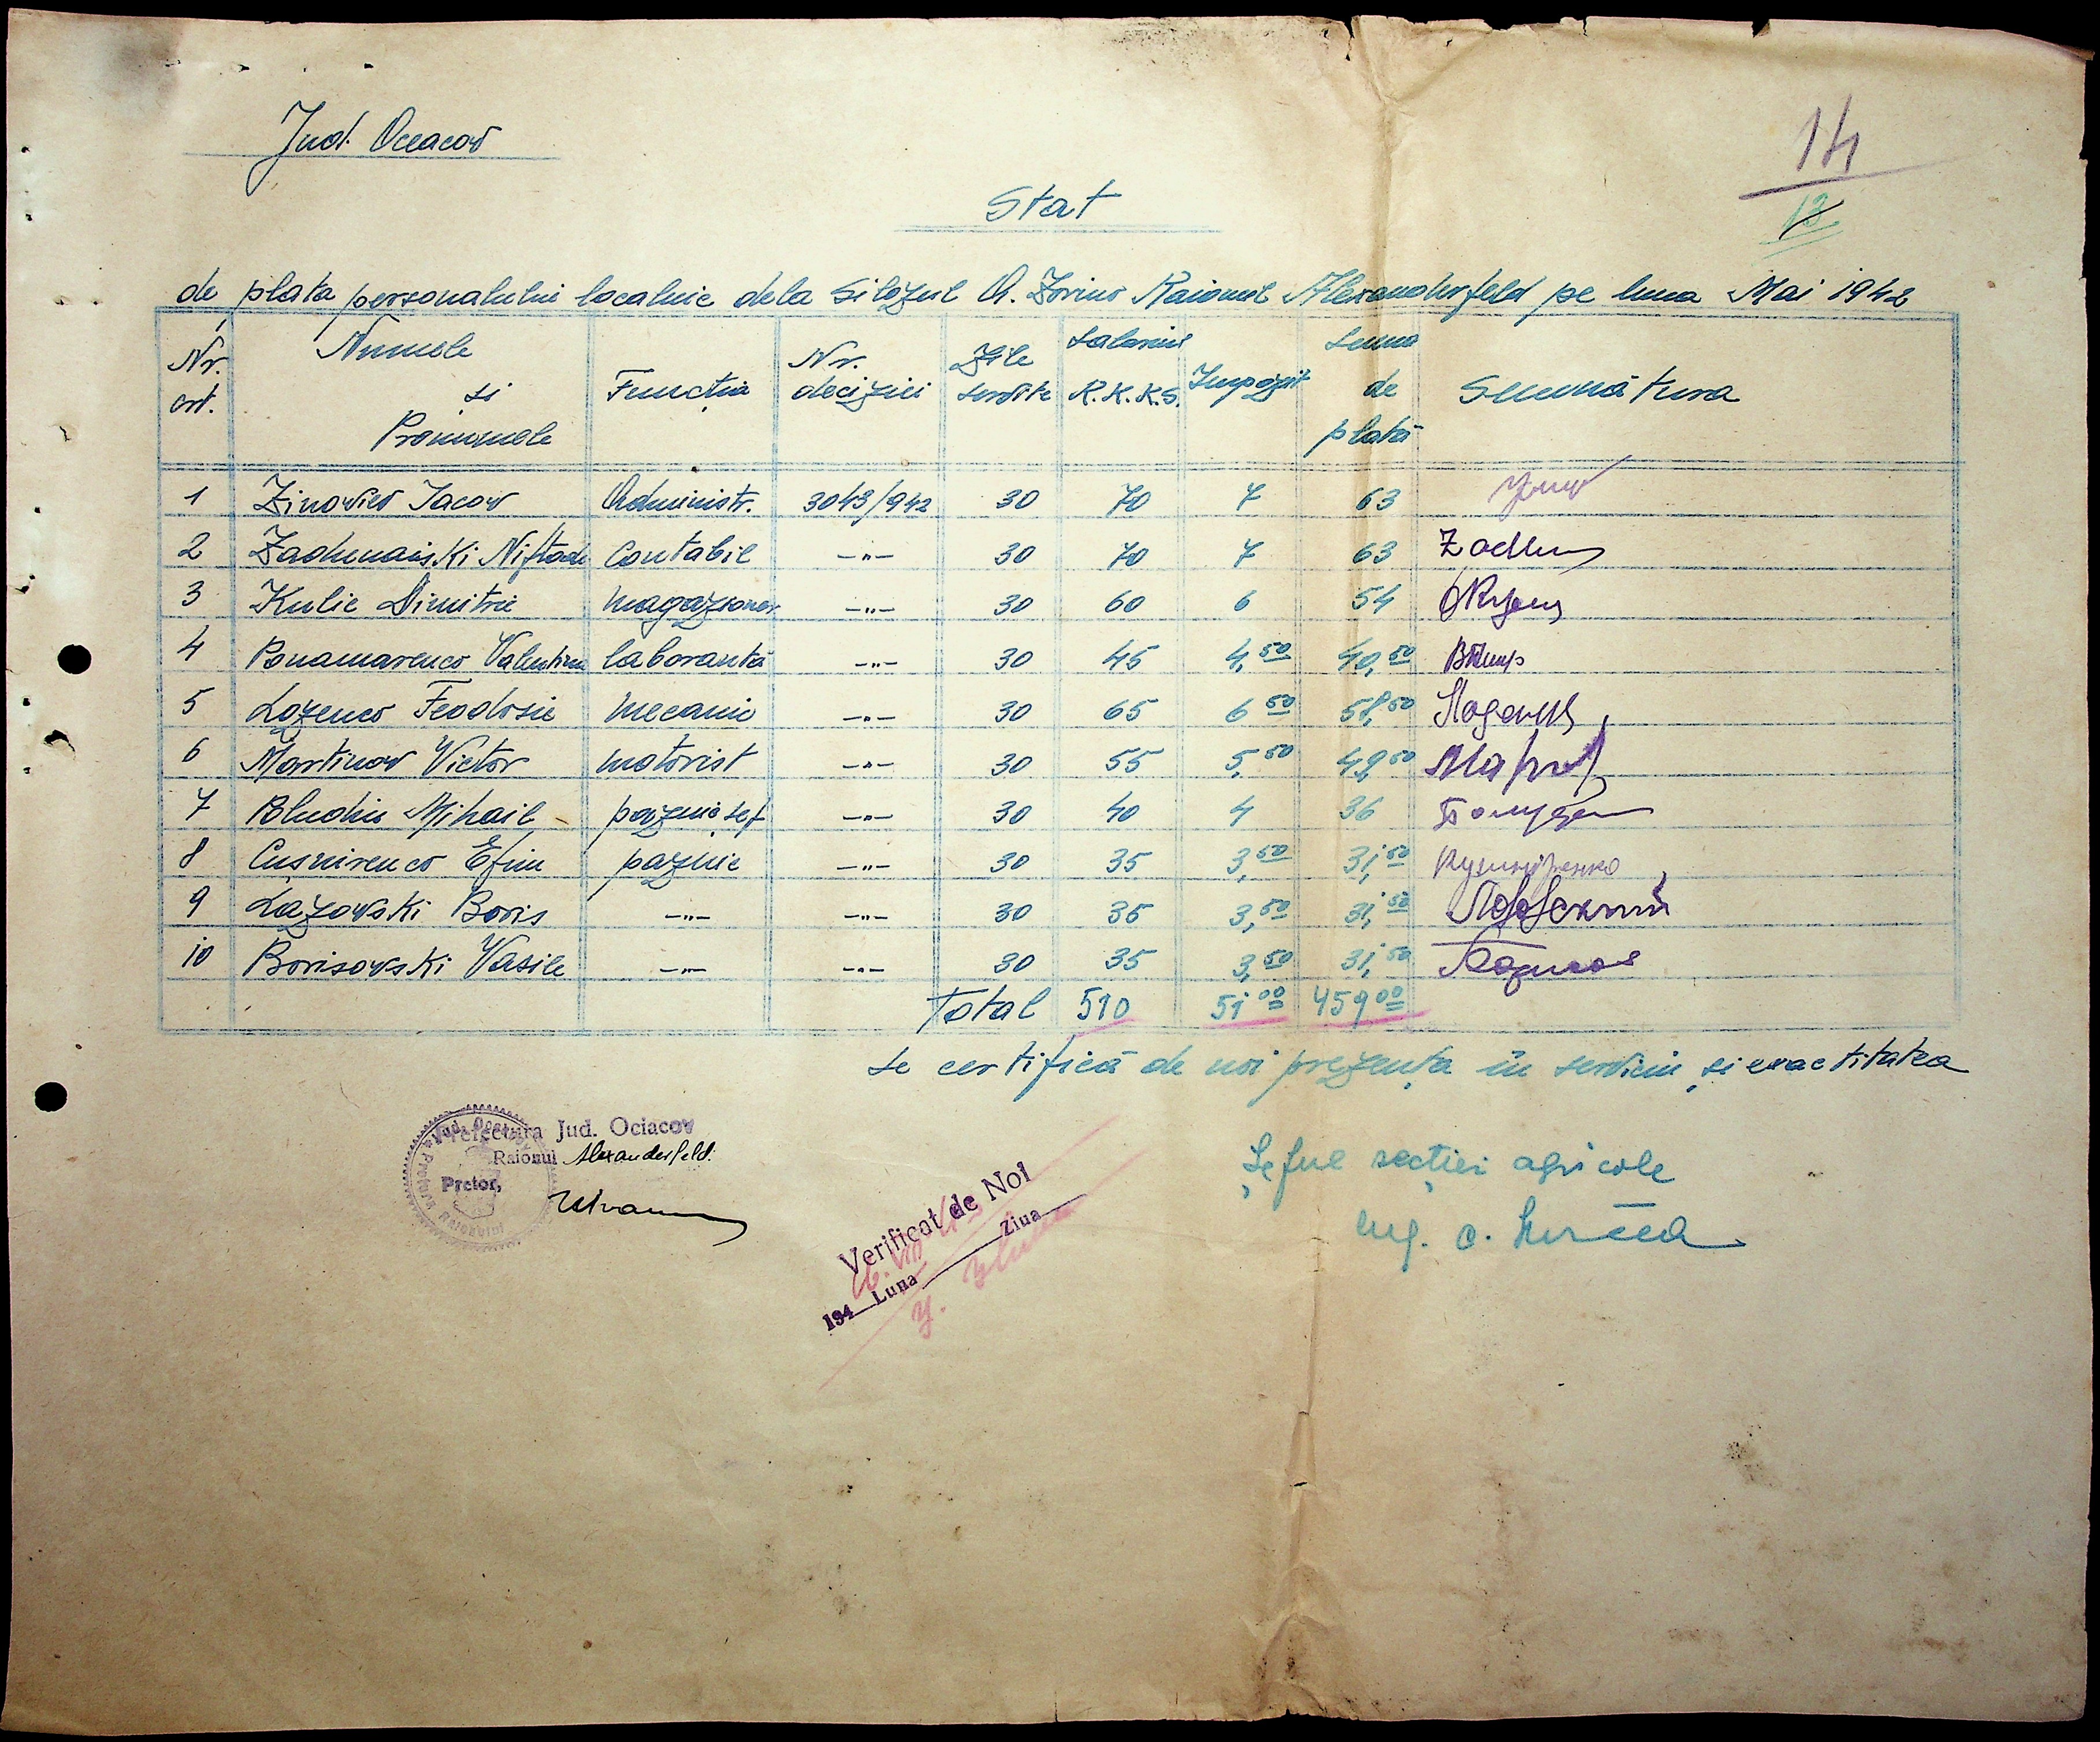 Jud. Oceacov
14
13
Stat
de plata personalului localnic dela Silozul A. Zorino Raionul Alexanderfeld pe luna Mai 1942
Nr. crt. Numele si Pronumele Funcția Nr. deciziei Zile servite Salariul R.K.K.S. Impozit Suma de plată Semnătura
1 Zinoviev Iacov Administr. 3043/942 30 70 7 63
2 Zadunaiski Contabil -"- 30 70 7 63 Zadun
3 Kulic Dimitrie magazioner -"- 30 60 6 54
4 Ponamarenco Valentina laborantă -"- 30 45 4,50 40,50
5 Lozenco Feodosie Mecanic -"- 30 65 6 50 58,50
6 Martinov Victor motorist -"- 30 55 5,50 49 50
7 Bludhin Mihail paznic șef -"- 30 40 4 36
8 Cusnirenco Efim paznic -"- 30 35 3,50 31,50 Кушніренко
9 Lazovski Boris -"- -"- 30 35 3,50 31,50
10 Borisovski Vasile -"- -"- 30 35 3,50 31,50
Total 510 51 00 459 00
se certifică de noi prezența în serviciu și exactitatea
Prefectura Jud. Ociacov
Raionul Alexanderfeld.
Pretor,
Șeful secției agricole
Ing. C.
Verificat de Noi
194 Luna Ziua